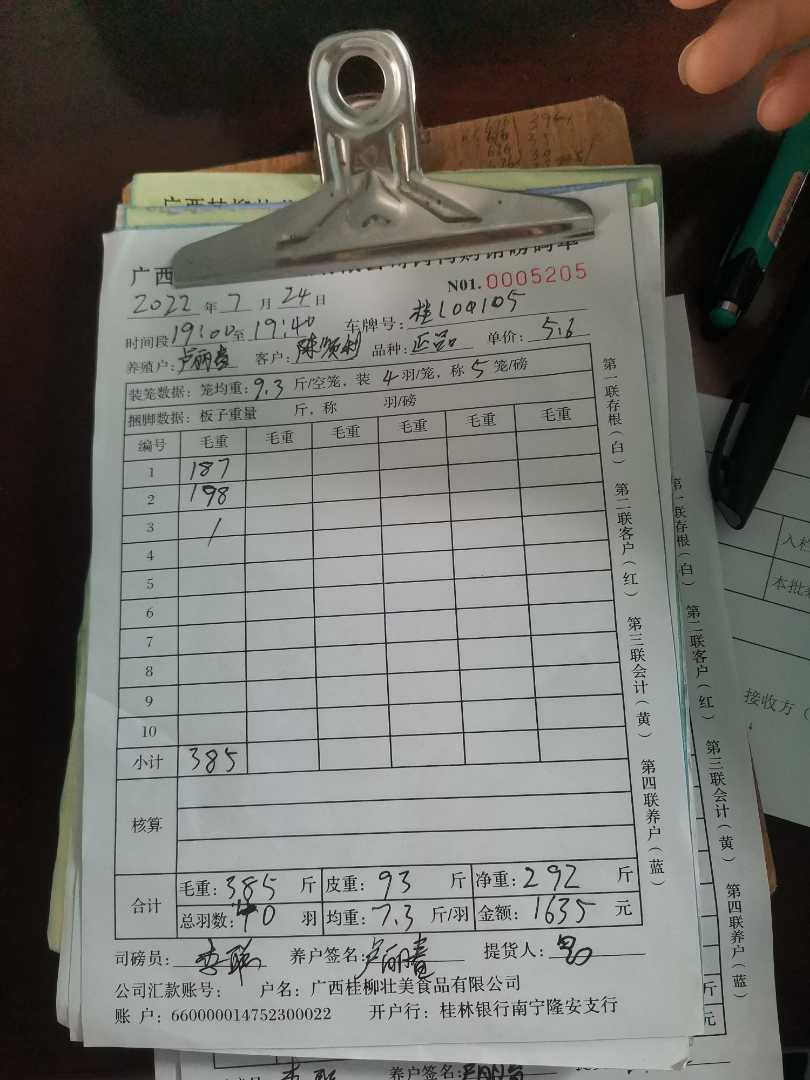 广西
N01.0005205
2022年7月24日
时间段19:00至19:40 车牌号:桂L0Q105
养殖户:卢丽春 客户:陈顺利 品种:正品 单价:5.6
装笼数据:笼均重:9.3斤/空笼,装4羽/笼,称5笼/磅
捆脚数据:板子重量 斤,称 羽/磅
编号 毛重 毛重 毛重 毛重 毛重 毛重
1 187
2 198
3 /
4
5
6
7
8
9
10
小计 385
核算
合计 毛重:385斤 皮重:93斤 净重:292斤
总羽数:40羽 均重:7.3斤/羽 金额:1635元
司磅员:李聪 养户签名:卢丽春 提货人:
公司汇款账号: 户名:广西桂柳壮美食品有限公司
账 户:660000014752300022 开户行:桂林银行南宁隆安支行
第一联存根(白) 第二联客户(红) 第三联会计(黄) 第四联养户(蓝)
第一联存根(白) 第二联客户(红) 第三联会计(黄) 第四联养户(蓝)
斤
元
养户签名:
入栏
本批
接收方(